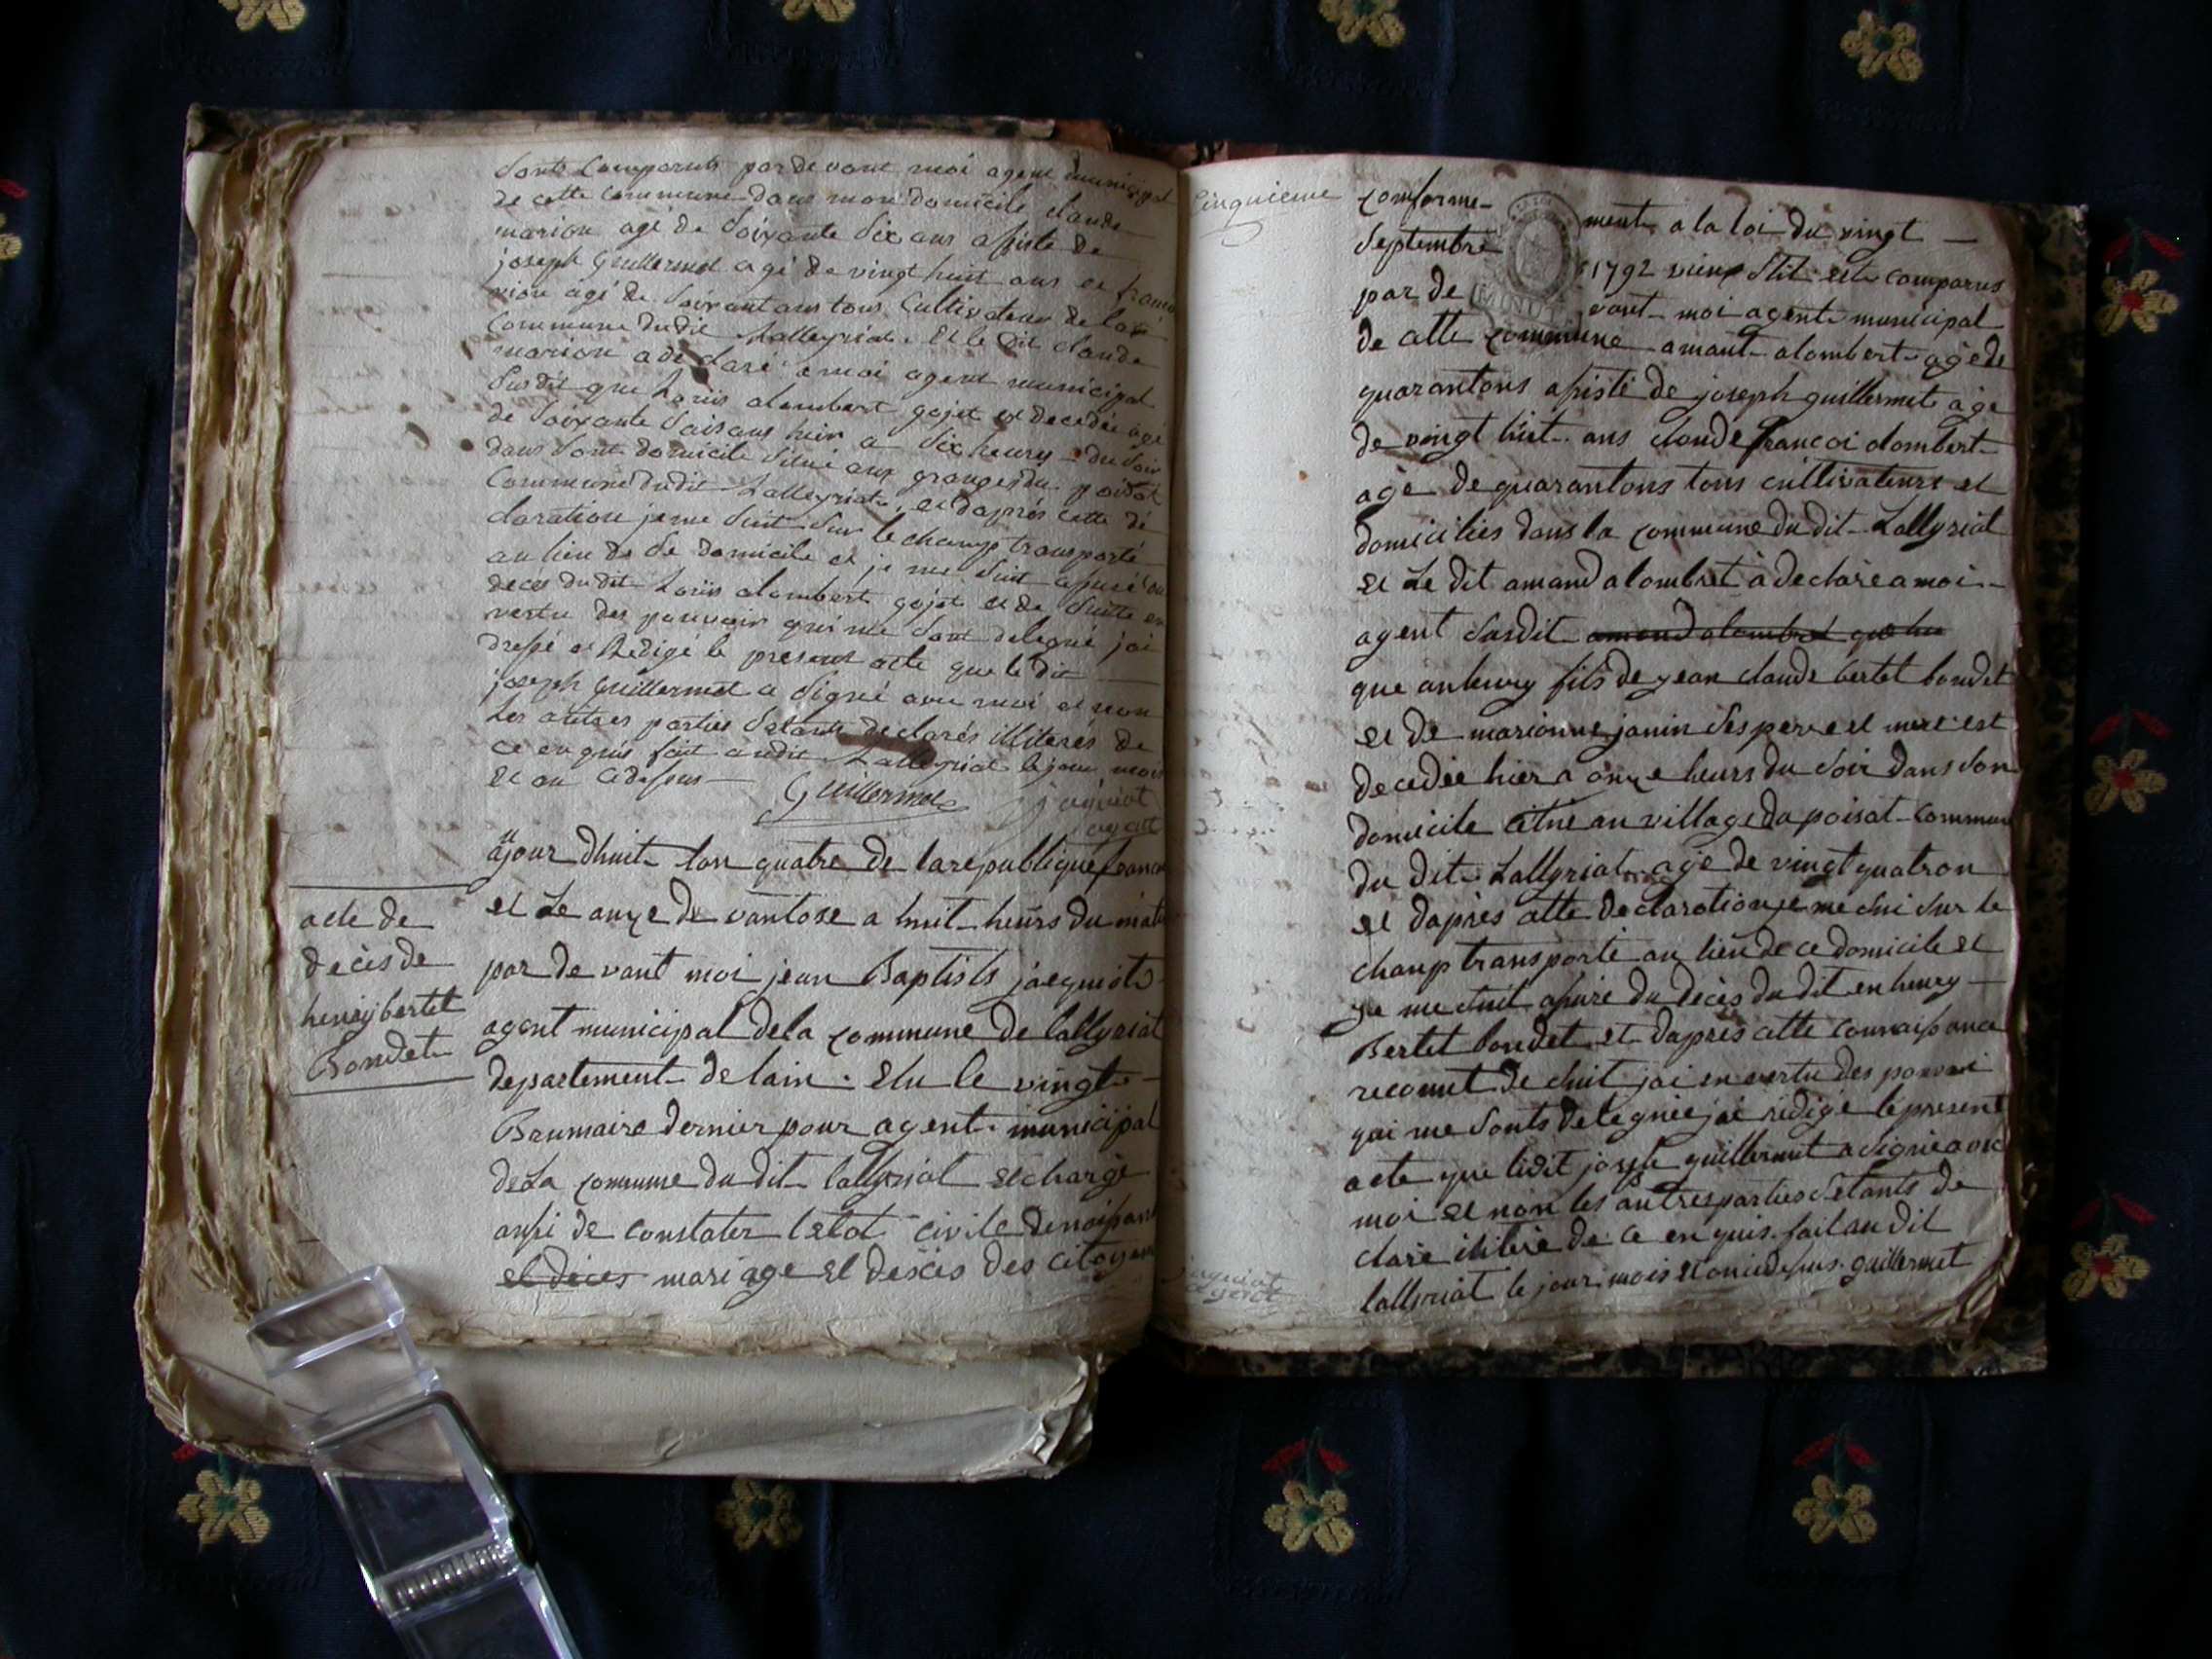 sont comparuts par devant moi agent municipal
de cette commune dans mon domicile claude
marion agé de soixante six ans assisté de
joseph Guillermet agé de vingt huit ans et francoi
vion agé de soixant ans tous cultivateur de la
commune dudit Lalleyriat. Et le dit claude
marion a déclaré a moi agent municipal
susdit que Louïs alombert gojat est decedée agé
de soixante saisans hier a six heurs du soir
dans sont domicile situé aux granges du poisat
commune dudit Lalleyriat, et daprés cette dé
claration je me suit sur le champ transporté
au lieu de se domicile et je me suit assuré du
deces du dit Louïs alombert gojat et de suitte en
vertu des pouvoir qui me sont delegué jai
dressé et Redigé le present acte que le dit
joseph Guillermet a signé avec moi et non
les autres parties setants declarés illiterés de
ce enquis fait audit Lalleyriat le jour mois
et an cidessus Guillermet jaquiot
agent
aujour dhuit lan quatre de la republique francai
acte de
décès de
henry bertet
Bondet
et Le onze de vantose a huit heurs du matin
par devant moi jean Baptists jacquiot
agent municipal dela commune de lallyriat
departement de lain. Elu le vingt
Brumaire dernier pour agent municipal
de La commune du dit lallyriat et chargé
aussi de constater letat civile de naissance
et décès mariage et descès des citoyens
Cinquieme
conforme- ment a la loi du vingt
septembre 1792 vieux stil est comparus
par de vant moi agent municipal
de cette commune amant alombert agé de
quarantans assisté de joseph guillermet agé
de vingt huit ans claude francoi alombert
agé de quarantans tous cultivateurs et
domiciliés dans la commune du dit Lallyriat
et Le dit amand alombret à declaré a moi
agent susdit amand alombret que hu
que anhenry fils de jean claude bertet bondet
et de marionne janin ses pere et mere est
decedée hier a onze heurs du soir dans son
domicile citué au village du poisat commune
du dit Lallyriat agé de vingt quatran
et daprès cette declaration je me sui sur le
chanp transporté au lieu de ce domicile et
je me suit assuré du decès du dit en henry
Bertet bondet et daprès cette connaissance
reconnut de suit jai en vertu des pouvoi
qui me sonts deleguée jai rédigé le present
acte que ledit joseph guillermet a signé avec
moi et non les autres parties sétants de
claré iliteré de ce enquis. fait au dit
lallyriat le jour mois et an cidessus. guillermet
jaquiot
agent